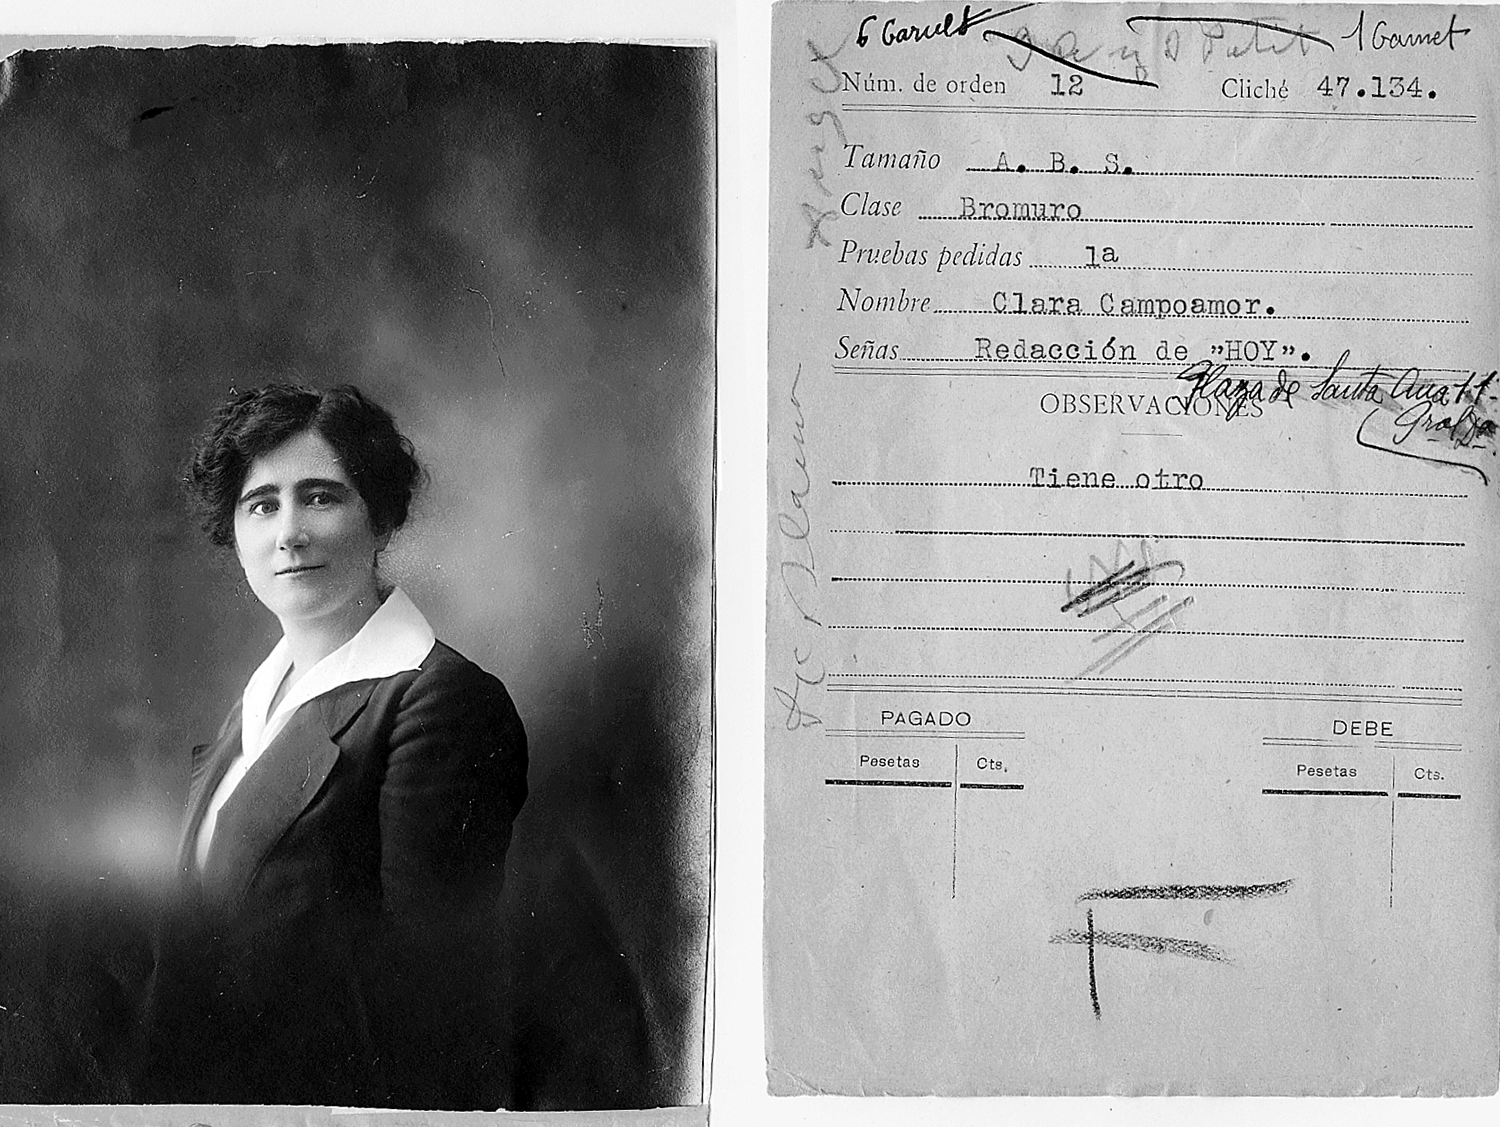 6 Carnets
1 Carnet
Núm. de orden 12 Cliché 47.134.
Tamaño A. B. S.
Clase Bromuro
Pruebas pedidas 1a
Nombre Clara Campoamor.
Señas Redacción de "HOY".
Plaza de Santa Ana 11-
OBSERVACIONES
Tiene otro
PAGADO DEBE
Pesetas Cts. Pesetas Cts.
F